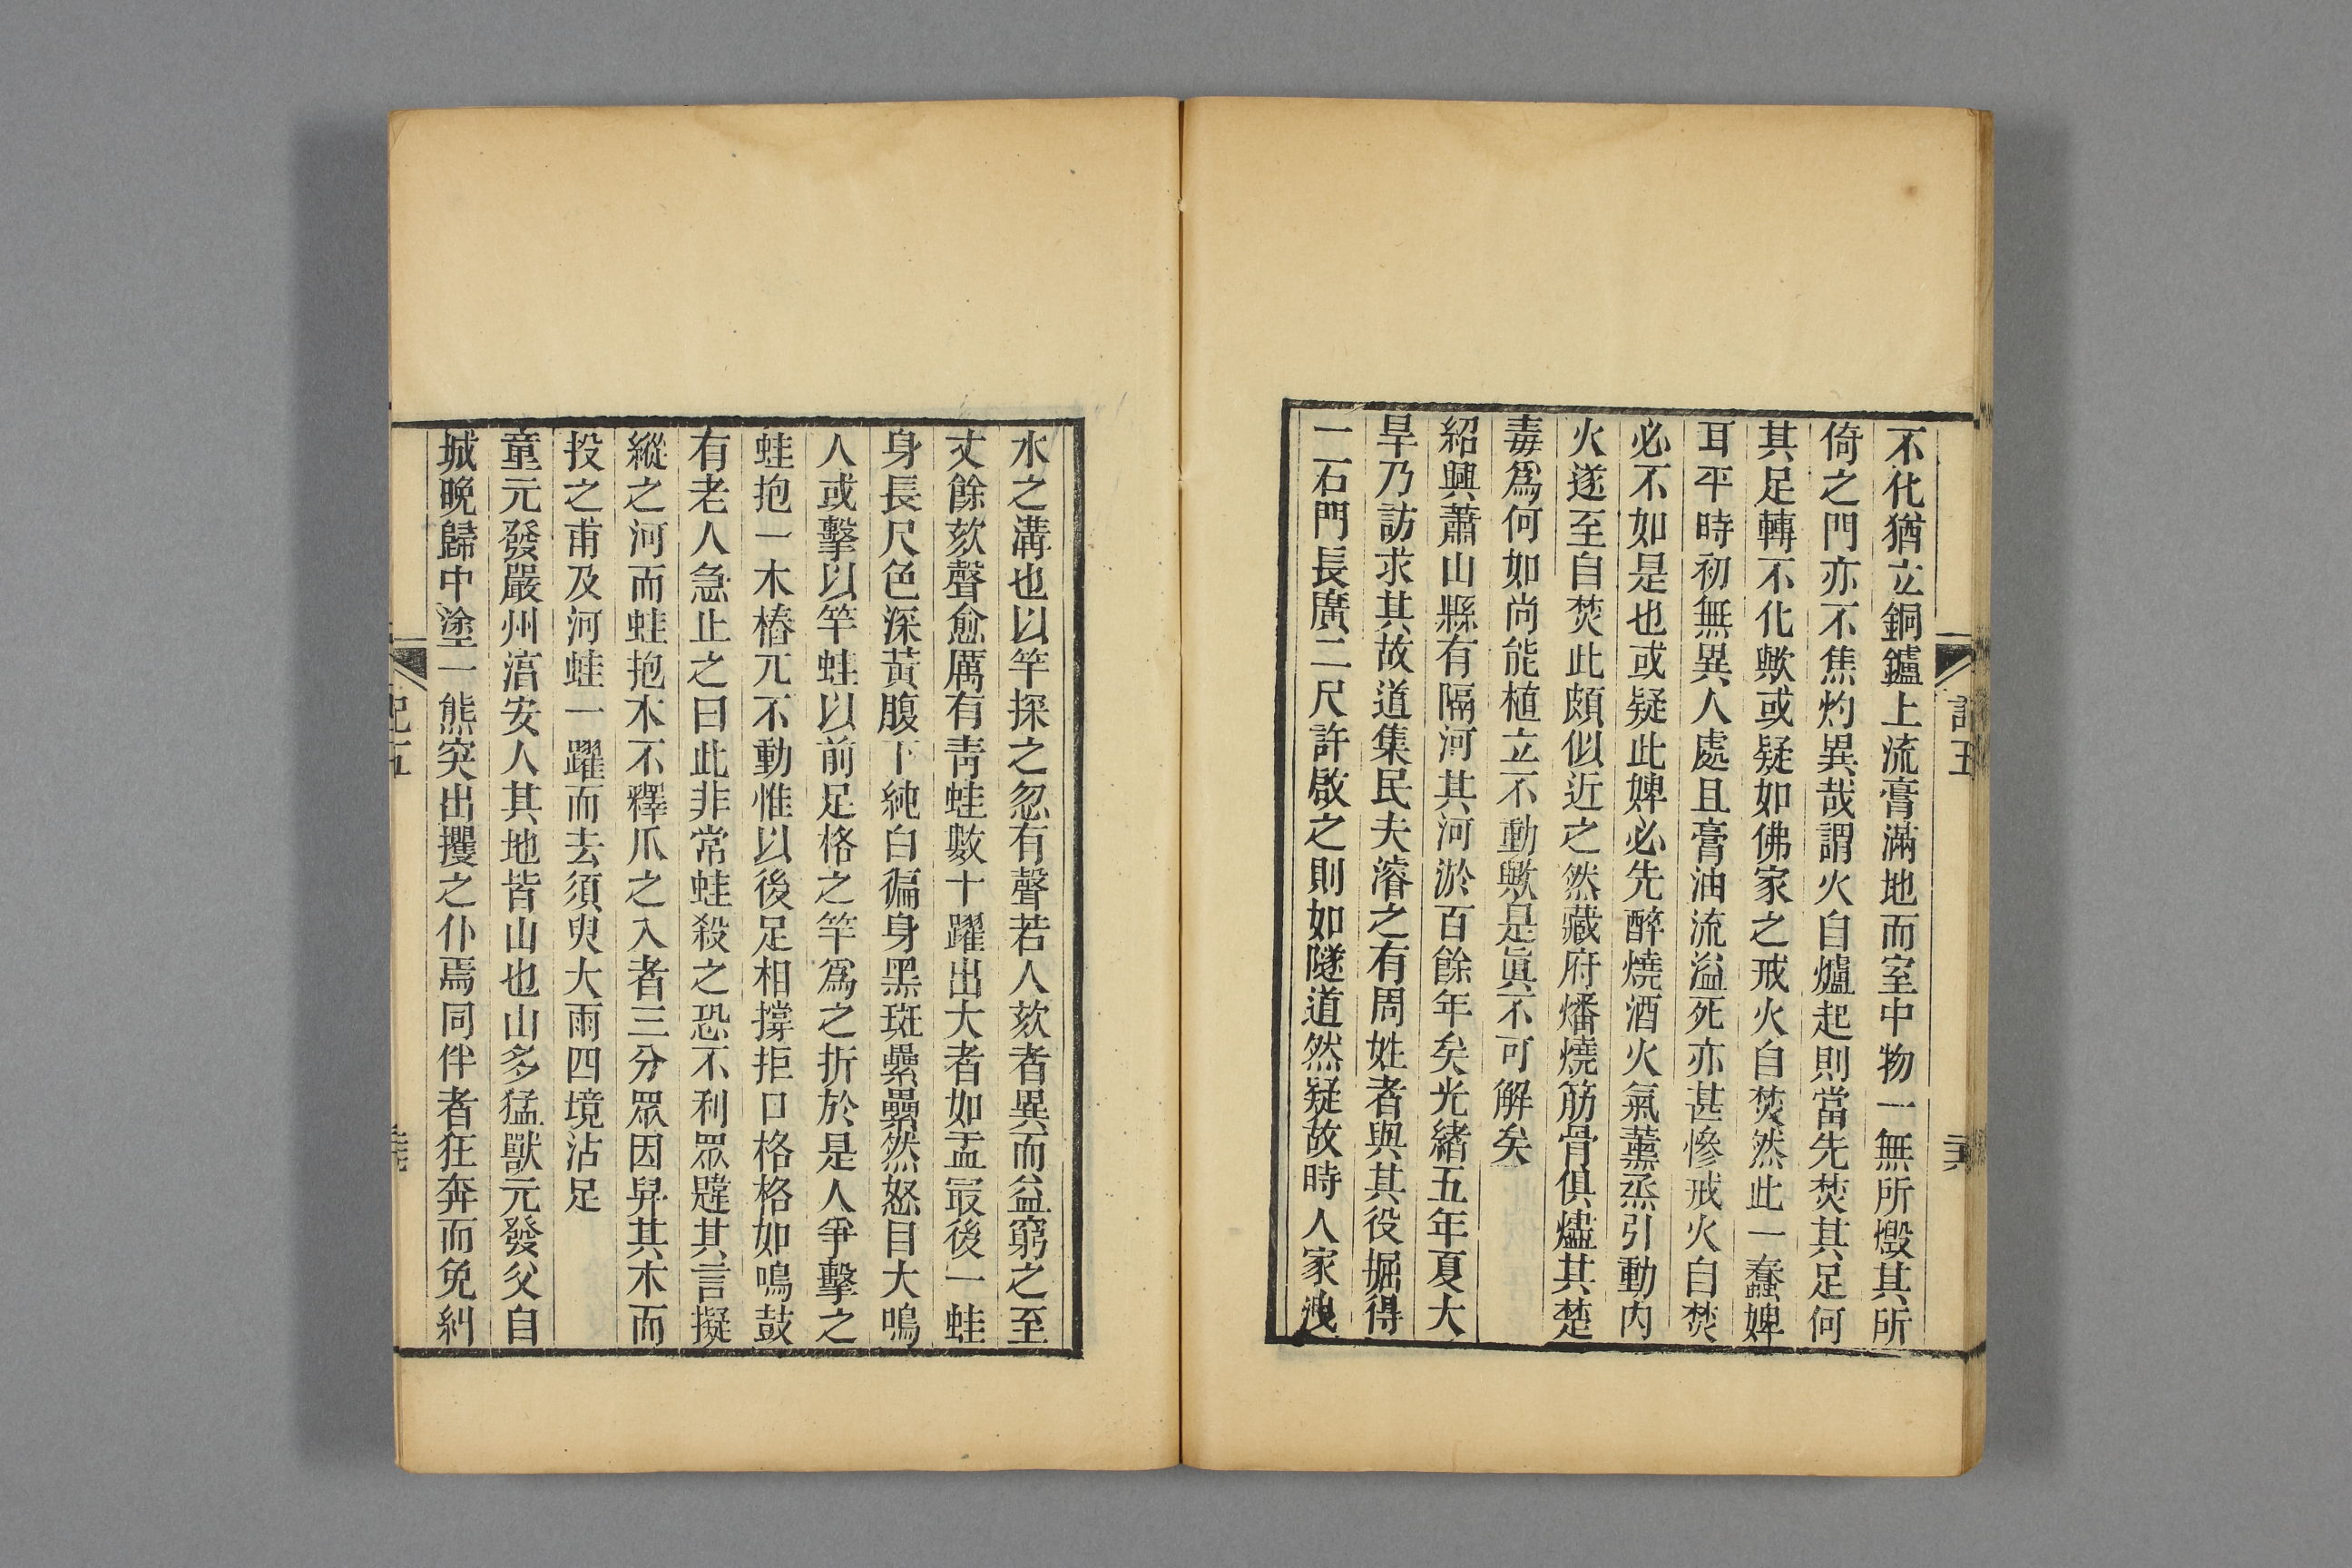 不化猶立銅鑪上流膏滿地而室中物一無所燬其所
倚之門亦不焦灼異哉謂火自爐起則當先焚其足何
其足轉不化歟或疑如佛家之戒火自焚然此一蠢婢
耳平時初無異人處且膏油流溢死亦甚慘戒火自焚
必不如是也或疑此婢必先醉燒酒火氣薰烝引動內
火遂至自焚此頗似近之然藏府燔燒筋骨俱燼其楚
毒爲何如尚能植立不動歟是眞不可解矣
紹興蕭山縣有隔河其河淤百餘年矣光緒五年夏大
旱乃訪求其故道集民夫濬之有周姓者與其役掘得
一石門長廣二尺許啟之則如隧道然疑故時人家洩
記五
水之溝也以竿探之忽有聲若人欬者異而益窮之至
丈餘欬聲愈厲有青蛙數十躍出大者如盂最後一蛙
身長尺色深黃腹下純白徧身黑斑纍纍然怒目大鳴
人或擊以竿蛙以前足格之竿爲之折於是人爭擊之
蛙抱一木樁兀不動惟以後足相撐拒口格格如鳴鼓
有老人急止之曰此非常蛙殺之恐不利眾韙其言擬
縱之河而蛙抱木不釋爪之入者三分眾因舁其木而
投之甫及河蛙一躍而去須臾大雨四境沾足
童元發嚴州湻安人其地皆山也山多猛獸元發父自
城晚歸中塗一熊突出攫之仆焉同伴者狂奔而免糾